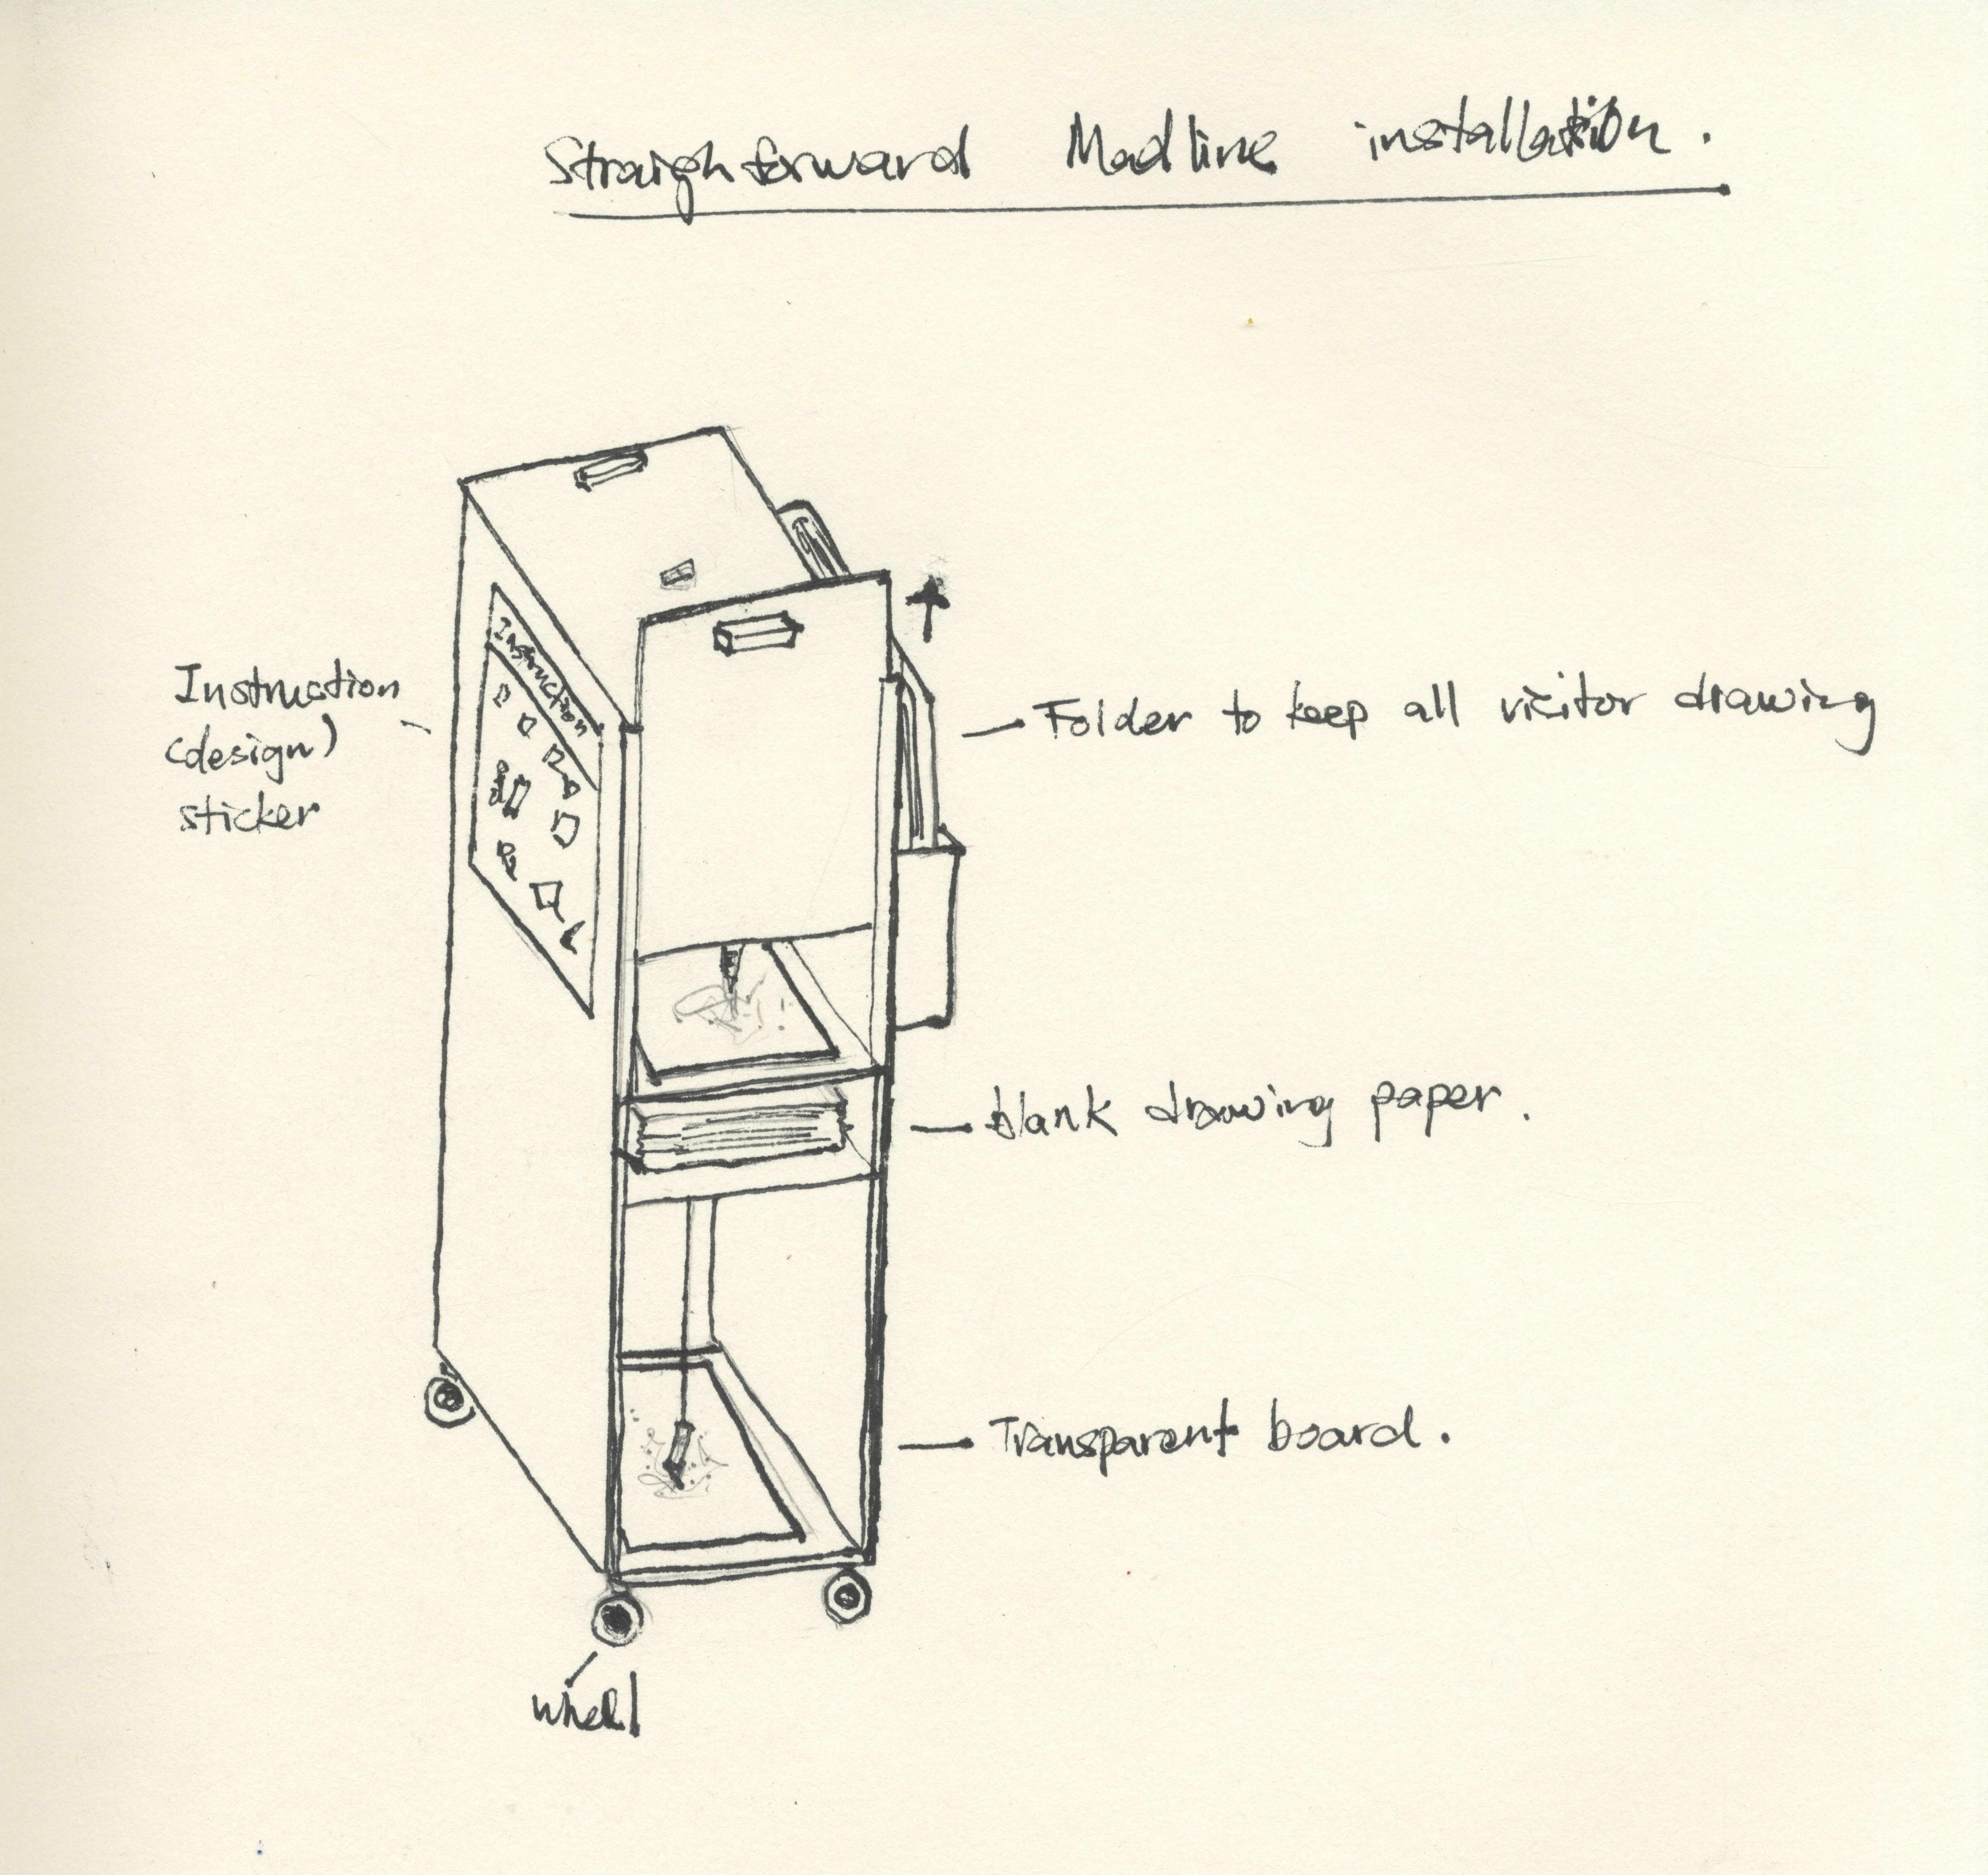 Straighforward Madline installation.
Instruction
Instruction
(design)
sticker
Folder to keep all visitor drawing
blank drawing paper.
Transparent board.
wheel